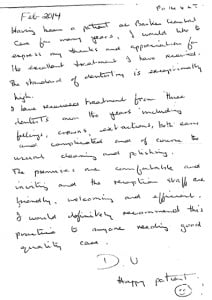 Feb 2014
Having been a patient at Barker Dental
Care for many years, I would like to
express my thanks and appreciation for
the excellent treatment I have received.
The standard of dentistry is exceptionally
high.
I have received treatment from three
dentists over the years including
fillings, crowns, extractions, both easy
and complicated and of course the
usual cleaning and polishing.
The premises are comfortable and
inviting and the reception staff are
friendly, welcoming and efficient.
I would definitely recommend this
practice to anyone needing good
quality care.
D. U
Happy patient.